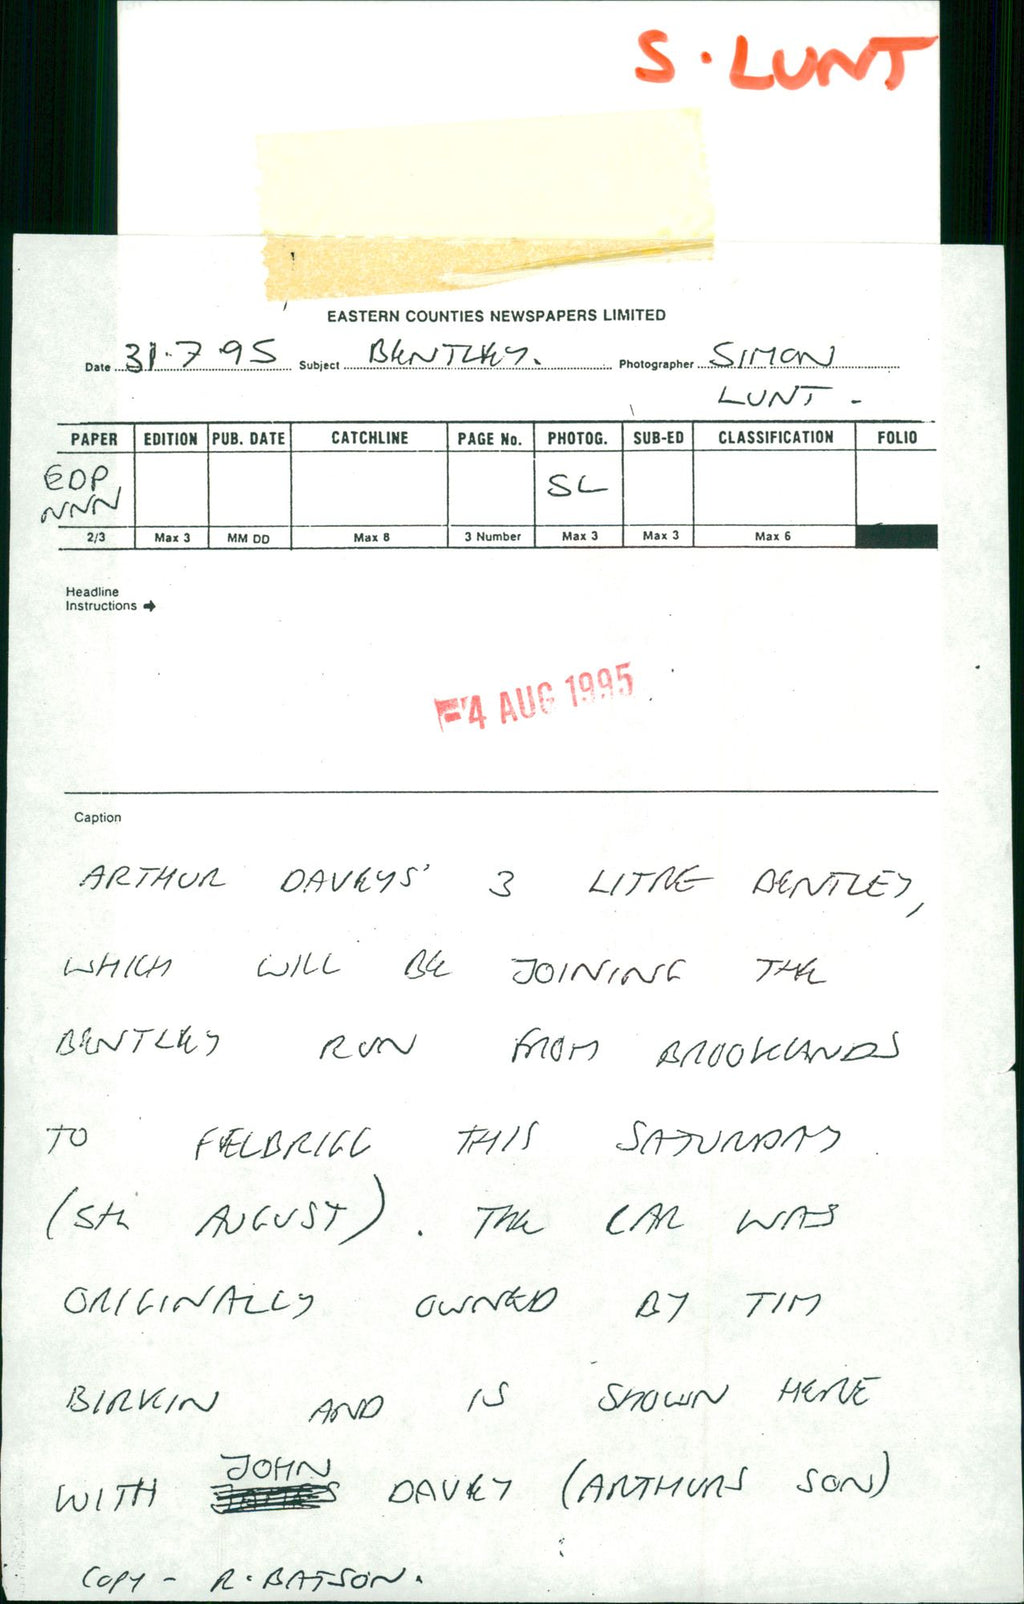 S. LUNT
EASTERN COUNTIES NEWSPAPERS LIMITED
Date 31.7.95 Subject BENTLEY. Photographer SIMON
LUNT -
PAPER EDITION PUB. DATE CATCHLINE PAGE No. PHOTOG. SUB-ED CLASSIFICATION FOLIO
EDP SL
NNN
2/3 Max 3 MM DD Max 8 3 Number Max 3 Max 3 Max 6
Headline
Instructions →
-4 AUG 1995
Caption
ARTHUR DAVEYS' 3 LITRE BENTLEY,
WHICH WILL BE JOINING THE
BENTLEY RUN FROM BROOKLANDS
TO FELBRIGG THIS SATURDAY
(5th AUGUST). THE CAR WAS
ORIGINALLY OWNED BY TIM
BIRKIN AND IS SHOWN HERE
JOHN
WITH JAMES DAVEY (ARTHURS SON)
COPY - R. BATSON.